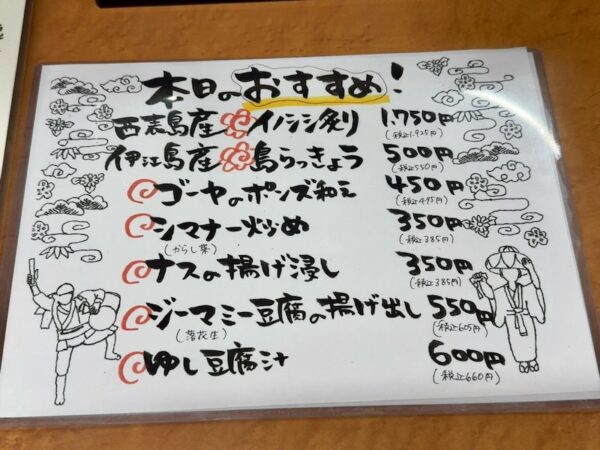 本日のおすすめ!
西表島産 イノシシ炙り 1.750円
(税込1.925円)
伊江島産 島らっきょう 500円
(税込550円)
ゴーヤのポンズ和え 450円
(税込495円)
シマナー炒め 350円
(からし菜) (税込385円)
ナスの揚げ浸し 350円
(税込385円)
ジーマミー豆腐の揚げ出し 550円
(落花生) (税込605円)
ゆし豆腐汁 600円
(税込660円)